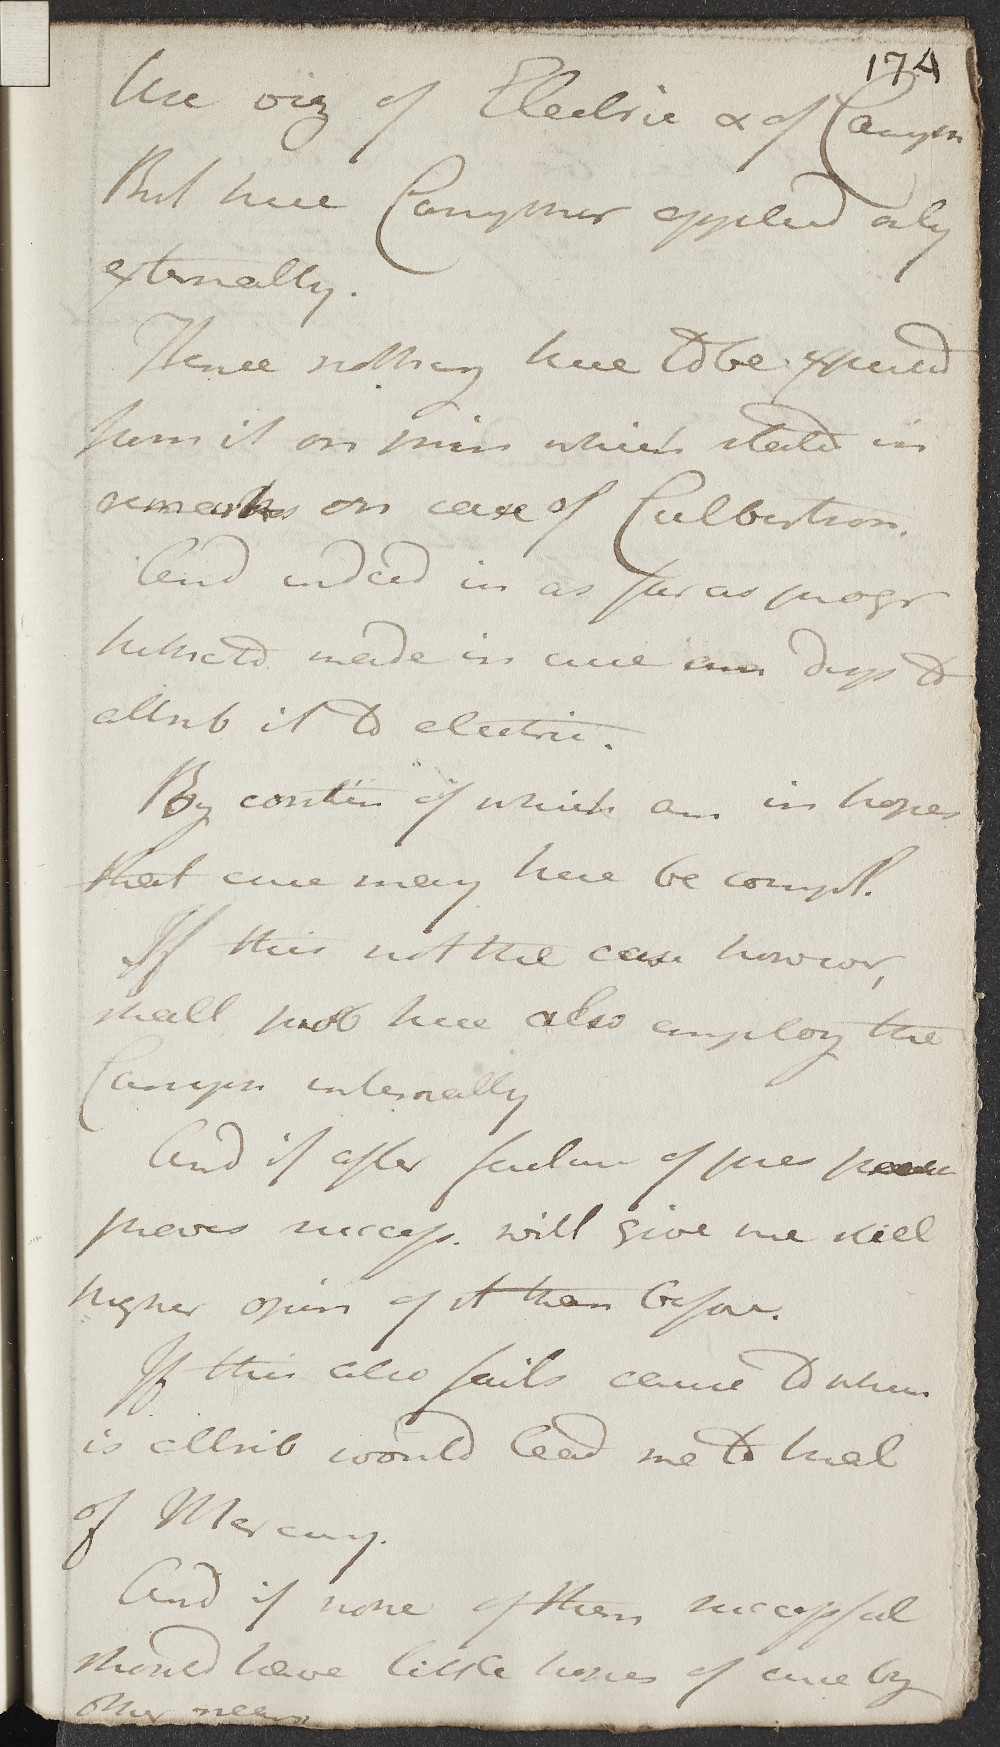 174
Use viz of Electric & of Canym
But here Canymor applied only
externally.
Hence nothing here to be expected
from it on prin which stated in
remarks on case of Culbertson.
And indeed in as far as progr
hitherto made in cure am disps to
attrib it to electric.
By contin of which am in hopes
that cure may here be compl.
If this not the case however,
shall prob here also employ the
Camym internally
And if after failure of pres
proves success. will give me still
higher opin of it than before.
If this also fails cause to whom
is attrib would lead me to trial
of Mercury.
And if none of them successful
should have little hopes of cure by
other means